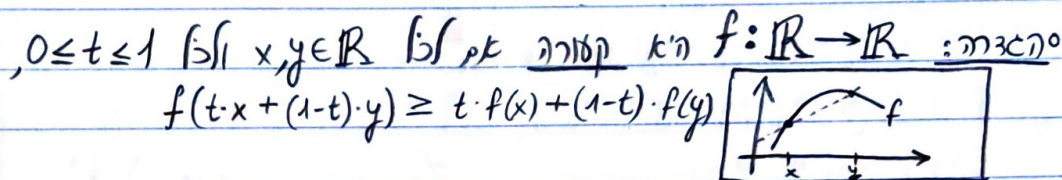 הגדרה: f: ℝ → ℝ היא קעורה אם לכל x,y∈ℝ ולכל 0≤t≤1,
f(t·x + (1-t)·y) ≥ t·f(x)+(1-t)·f(y)
f
x y